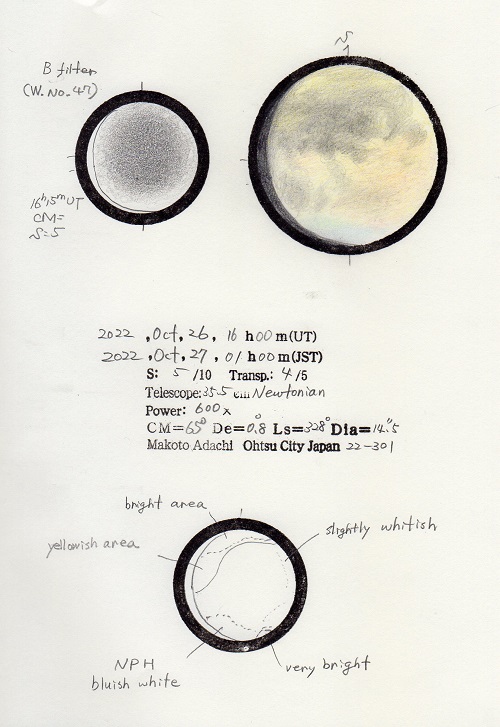 B filter
(W. No. 47)
S
16h15mUT
CM=
S=5
2022 ,Oct, 26, 16 h00m(UT)
2022 ,Oct, 27, 01 h00m(JST)
S: 5 /10 Transp.: 4/5
Telescope:35.5 cm Newtonian
Power: 600x
CM=65° De=0.8° Ls=328° Dia=14."5
Makoto Adachi Ohtsu City Japan 22-301
bright area
slightly whitish
yellowish area
NPH
bluish white
very bright